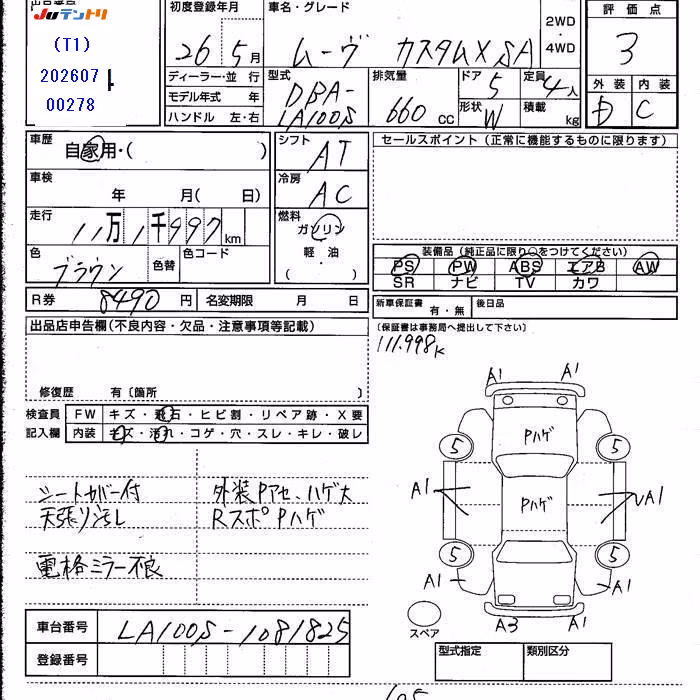 出品番号
JUテントリ
(T1)
202607
00278
初度登録年月
26年5月
車名・グレード
ムーヴ カスタムX SA
2WD
・
4WD
評価点
3
外装 内装
D C
ディーラー・並行
モデル年式 年
ハンドル 左・右
型式
DBA-
LA100S
排気量
660 cc
ドア
5
形状 W
定員
4人
積載
kg
車歴
自家用・( )
車検
年 月( 日)
走行
11万1千997km
色
ブラウン
色替
色コード
シフト
AT
冷房
AC
燃料
ガソリン
軽・油
( ・ )
セールスポイント(正常に機能するものに限ります)
装備品(純正品に限り○をつけてください)
PS PW ABS エアB AW
SR ナビ TV カワ
R券 8490円 名変期限 月 日
新車保証書 有・無 後日品
(保証書は事務局へ提出して下さい)
111.998k
出品店申告欄(不良内容・欠品・注意事項等記載)
修復歴 有〔箇所 〕
検査員
記入欄
FW キズ・飛石・ヒビ割・リペア跡・X要
内装 キズ・汚れ・コゲ・穴・スレ・キレ・破レ
シートカバー付
天張り汚レ
電格ミラー不良
外装Pアセ、ハゲ大
RスポPハゲ
A1 A1
Pハゲ
5 5
A1 Pハゲ A1
5 5
A1 A1
A3 A1
スペア
車台番号 LA100S-1081825
登録番号
型式指定 類別区分